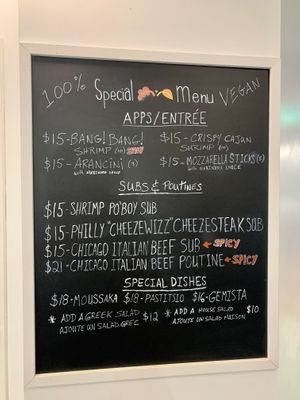 100% Special Menu VEGAN
APPS/ENTRÉE
$15-BANG! BANG! SHRIMP
$15-ARANCINI
WITH MARINARA SAUCE
$15-CRISPY CAJUN SHRIMP
$15-MOZZARELLA STICKS
WITH MARINARA SAUCE
SUBS & POUTINES
$15-SHRIMP PO'BOY SUB
$15-PHILLY "CHEEZEWIZZ" CHEEZESTEAK SUB
$15-CHICAGO ITALIAN BEEF SUB SPICY
$21-CHICAGO ITALIAN BEEF POUTINE SPICY
SPECIAL DISHES
$18-MOUSSAKA $18-PASTITSIO $16-GEMISTA
* ADD A GREEK SALAD $12
AJOUTE UN SALAD GREC
* ADD A HOUSE SALAD $10
AJOUTE UN SALAD MAISON